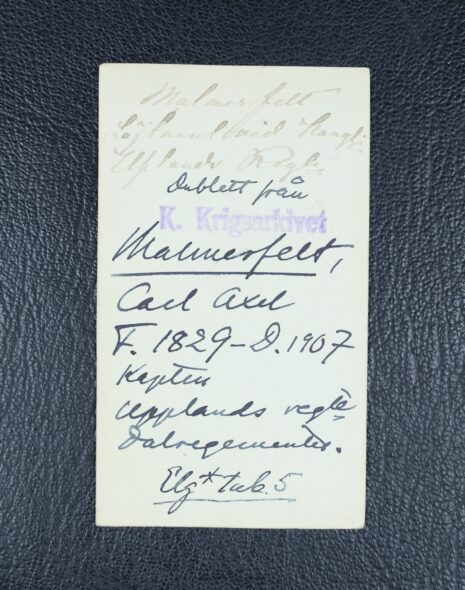 Malmerfelt
Löjtnant vid Kongl.
Uplands Regte
Dublett från
K. Krigsarkivet
Malmerfelt,
Carl Axel
F. 1829–D. 1907
Kapten
Upplands regte
Dalregementet.
Elg* tab. 5